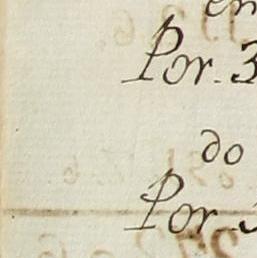 en
Por. 3
do
Por